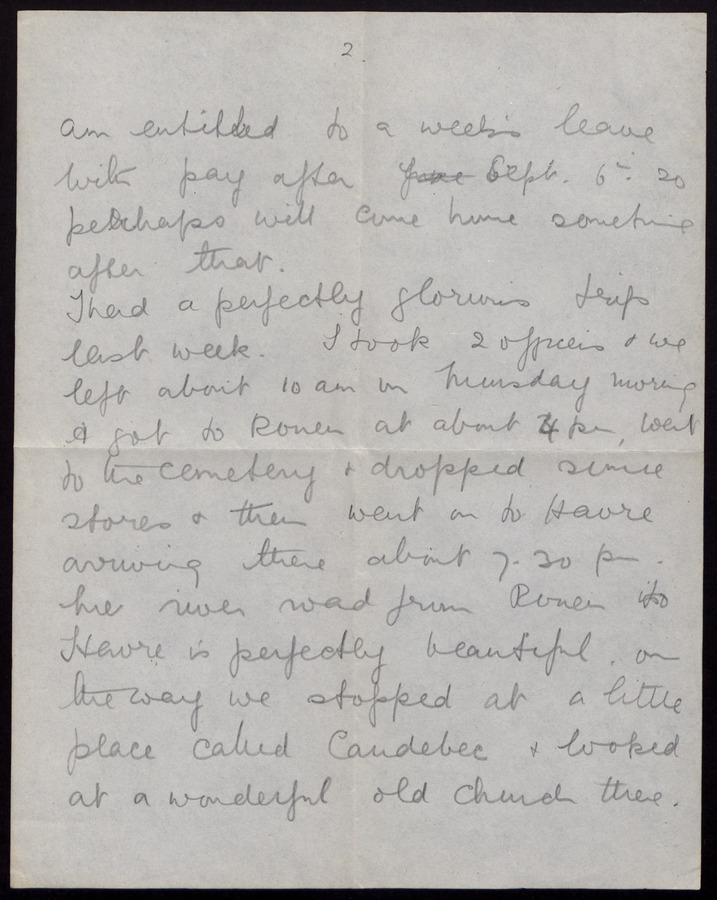 2.
am entitled to a week's leave
with pay after June Sept. 6th. so
perhaps will come home sometime
after that.
I had a perfectly glorious trip
last week. I took 2 officers & we
left about 10 am on Thursday morning
& got to Rouen at about 4 pm, went
to the cemetery & dropped some
stores & then went on to Havre
arriving there about 7.30 pm.
The river road from Rouen to
Havre is perfectly beautiful. on
the way we stopped at a little
place called Caudebec & looked
at a wonderful old church there.